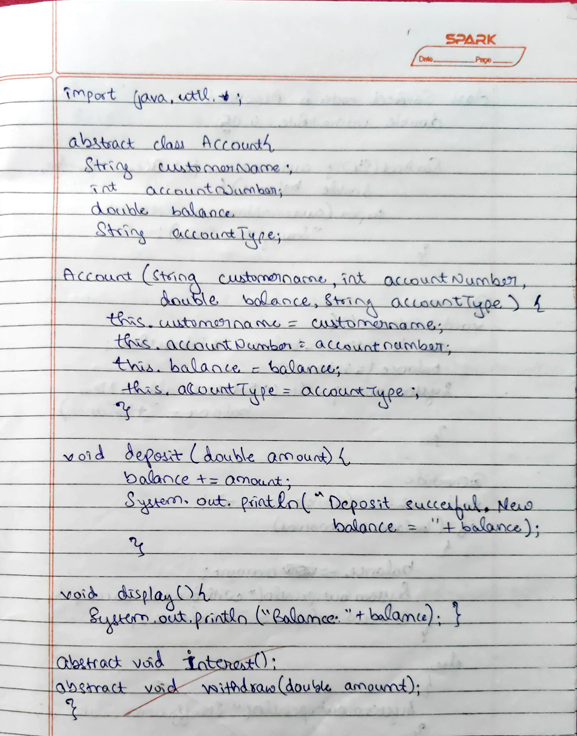 SPARK
Date Page
import java.util.*;
abstract class Account{
String customerName;
int accountNumber;
double balance
String accountType;
Account (String customername, int accountNumber,
double balance, String accountType) {
this.customername = customername;
this.accountNumber = accountnumber;
this.balance = balance;
this.acountType = accountType;
}
void deposit(double amount){
balance += amount;
System.out.println("Deposit succesful. New
balance = "+balance);
}
void display(){
System.out.println ("Balance: "+balance); }
abstract void interest();
abstract void withdraw(double amount);
}